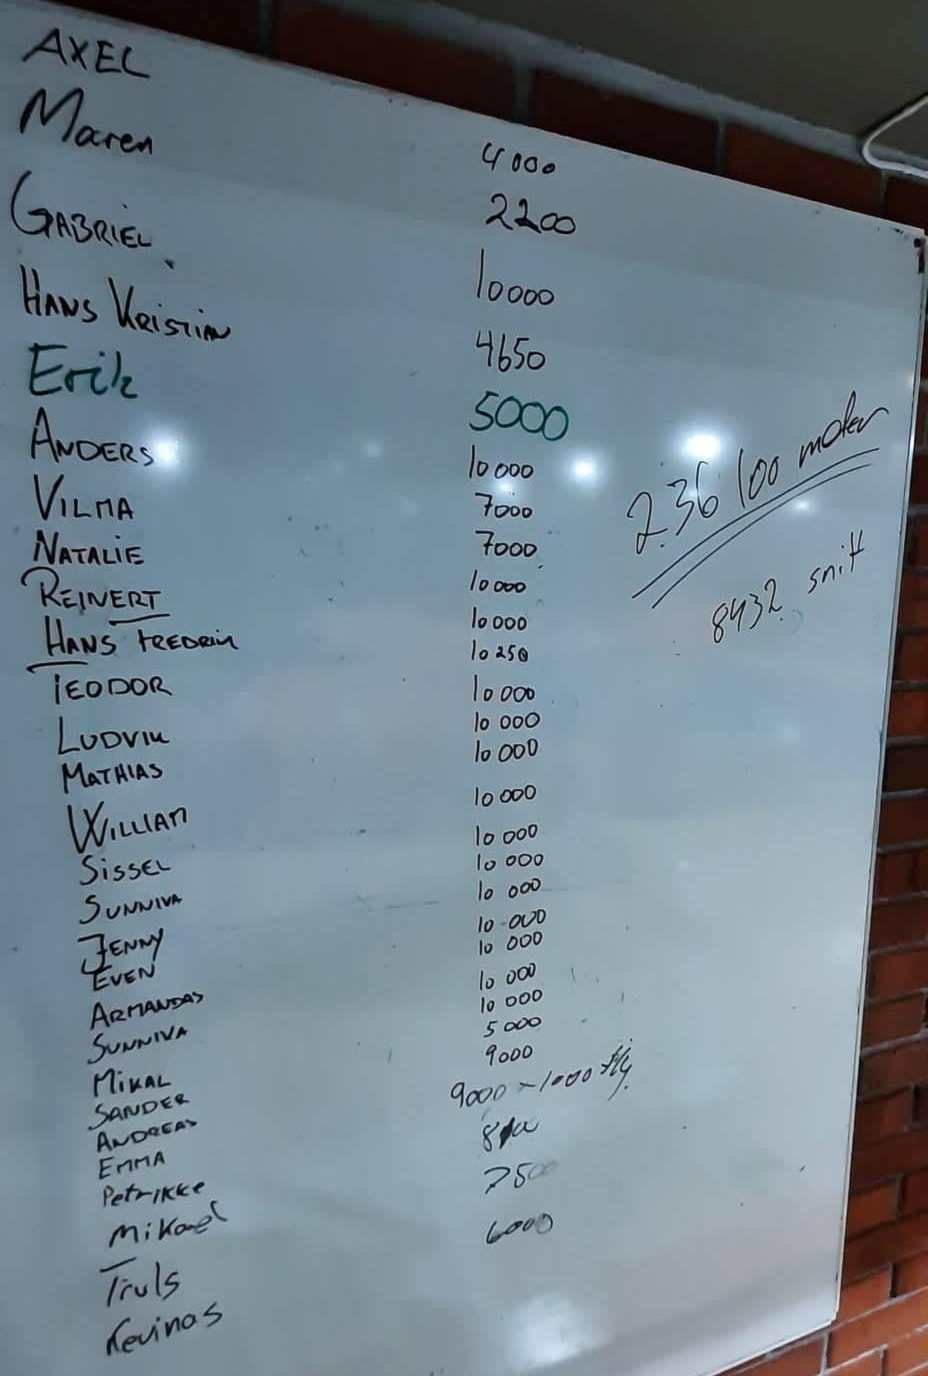 AXEL 4000
Maren 2200
GABRIEL 10000
HANS KRISTIAN 4650
Erik 5000
ANDERS 10 000
VILMA 7000
NATALIE 7000
REINERT 10 000
HANS FREDRIK 10 000
TEODOR 10 250
LUDVIK 10 000
MATHIAS 10 000
WILLIAM 10 000
SISSEL 10 000
SUNNIVA 10 000
JENNY 10 000
EVEN 10 000
ARMANDAS 10 000
SUNNIVA 10 000
MIKAL 10 000
SANDER 10 000
ANDREAS 5000
EMMA 9000
Petrikke 9000 - 1000 fly
Mikael
Truls 7500
Kevinas 6000
236 100 meter
8432 snitt